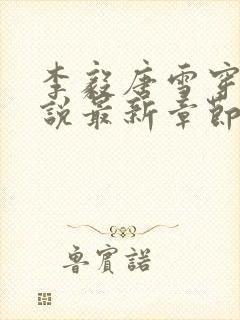 李毅唐雪穿
說最新章節
魯賓諾